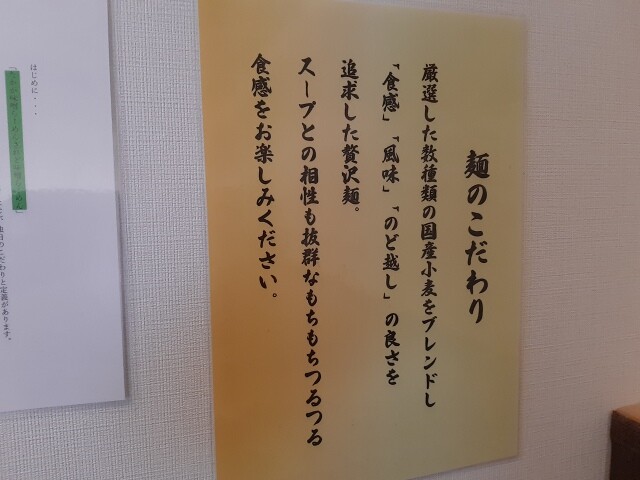 麺のこだわり
厳選した数種類の国産小麦をブレンドし
「食感」「風味」「のど越し」の良さを
追求した贅沢麺。
スープとの相性も抜群なもちもちつるつる
食感をお楽しみください。
はじめに・・・
こだわりと定義があります。